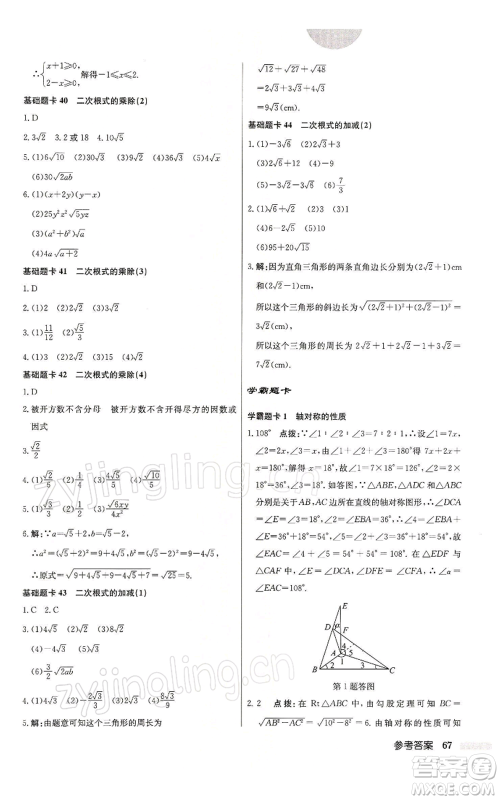 ∴{x+1⩾0, 2−x⩾0, 解得−1⩽x⩽2.
基础题卡40 二次根式的乘除(2)
1. D
2. 3√2 3. 2或18 4. 10√5
5. (1)6√10 (2)30√3 (3)9√2 (4)36√3 (5)4√x
(6)30√3 (7)5√3 (8)√(2ab)
6. (1)(x+2y)(y−x)
(2)20y²x²√(5yz)
(3)(a²+b²)√a
(4)4a√(a+2)
基础题卡41 二次根式的乘除(3)
1. D
2. D
3. (1)11/12 (2)√5/3
4. (1)3 (2)2√3 (3)√2 (4)12
基础题卡42 二次根式的乘除(4)
1. D
2. 被开方数不含分母 被开方数不含能开得尽方的因数或
因式
3. √2/2
4. (1)√2/6 (2)√15/6 (3)4√5/5
5. (1)√3/3 (2)√2/2 (3)√(6xy)/(4x²)
6. 解:∵a=√5−2,∴a+2=√5.
∴a²=(√5−2)²=5−4√5+4=9−4√5.
∴原式=√(9+4√5−4√5)=√9=3.
基础题卡43 二次根式的加减(1)
1. C 2. C
3. (1)4√5 (2)3√2 (3)6√3 (4)5√a
(6)3√2
4. (1)0 (2)2√3/3 (3)8√3/3 (4)−√3
5. 解:由题意可知这个三角形的周长为
√12+√27+√48
=2√3+3√3+4√3
=9√3(cm).
基础题卡44 二次根式的加减(2)
1. (1)−3√6 (2)2√3+3
(3)6−3√6 (6)7/3
2. (1)9√2 (2)0 (3)√6
(4)6−2√5 (5)10−5√3
(6)95+20√2
3. 解:因为直角三角形的两条直角边长分别为(2√2+1)cm
和(2√2−1)cm,
所以这个三角形的斜边长为√((2√2+1)²+(2√2−1)²)=
3√2(cm).
所以这个三角形的周长为2√2+1+2√2−1+3√2=
7√2(cm).
学霸题卡
学霸题卡1 轴对称的性质
1. 108° 点拨:∵∠1∶∠2∶∠3=7∶2∶1,∴设∠1=7x,
∠2=2x,∠3=x.由∠1+∠2+∠3=180°得7x+2x+x=
180°,解得x=18°,故∠1=7×18=126°,∠2=2×
18°=36°,∠3=1×18=18°.∵△ABE和△ADC
分别是关于AB、AC边所在直线的轴对称图形,∴∠DCA
=∠E=∠3=18°,∠2=∠EBA=∠D=36°,∠4=∠EBA
+∠E=36°+18°=54°,∠5=∠2+∠3=18°+36°=54°,
故∠EAC=∠4+∠5=54°+54°=108°.在△EDF与
△CAF中,∠E=∠DCA,∠DFE=∠CFA,∴∠a=
∠EAC=108°.
E
D α F
4
A 5
1
B C
2 3
第1题答图
2. 2 点拨:在Rt△ABC中,由勾股定理可知BC=
√(AB²−AC²)=√(10²−8²)=6.由轴对称的性质可知
zyjingling.com
zyjl.cn
参考答案 67